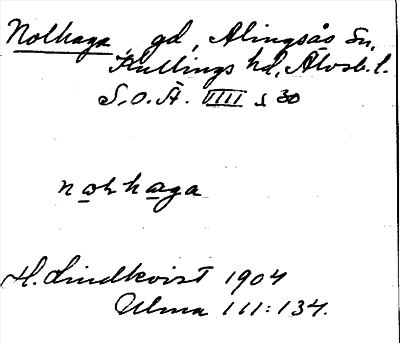 Nolhaga, gd, Alingsås sn,
Kullings hd, Älvsb. l.
S.O.Ä. VIII s 30
nolhaga
H. Lindkvist 1904
Ulma 111:134.